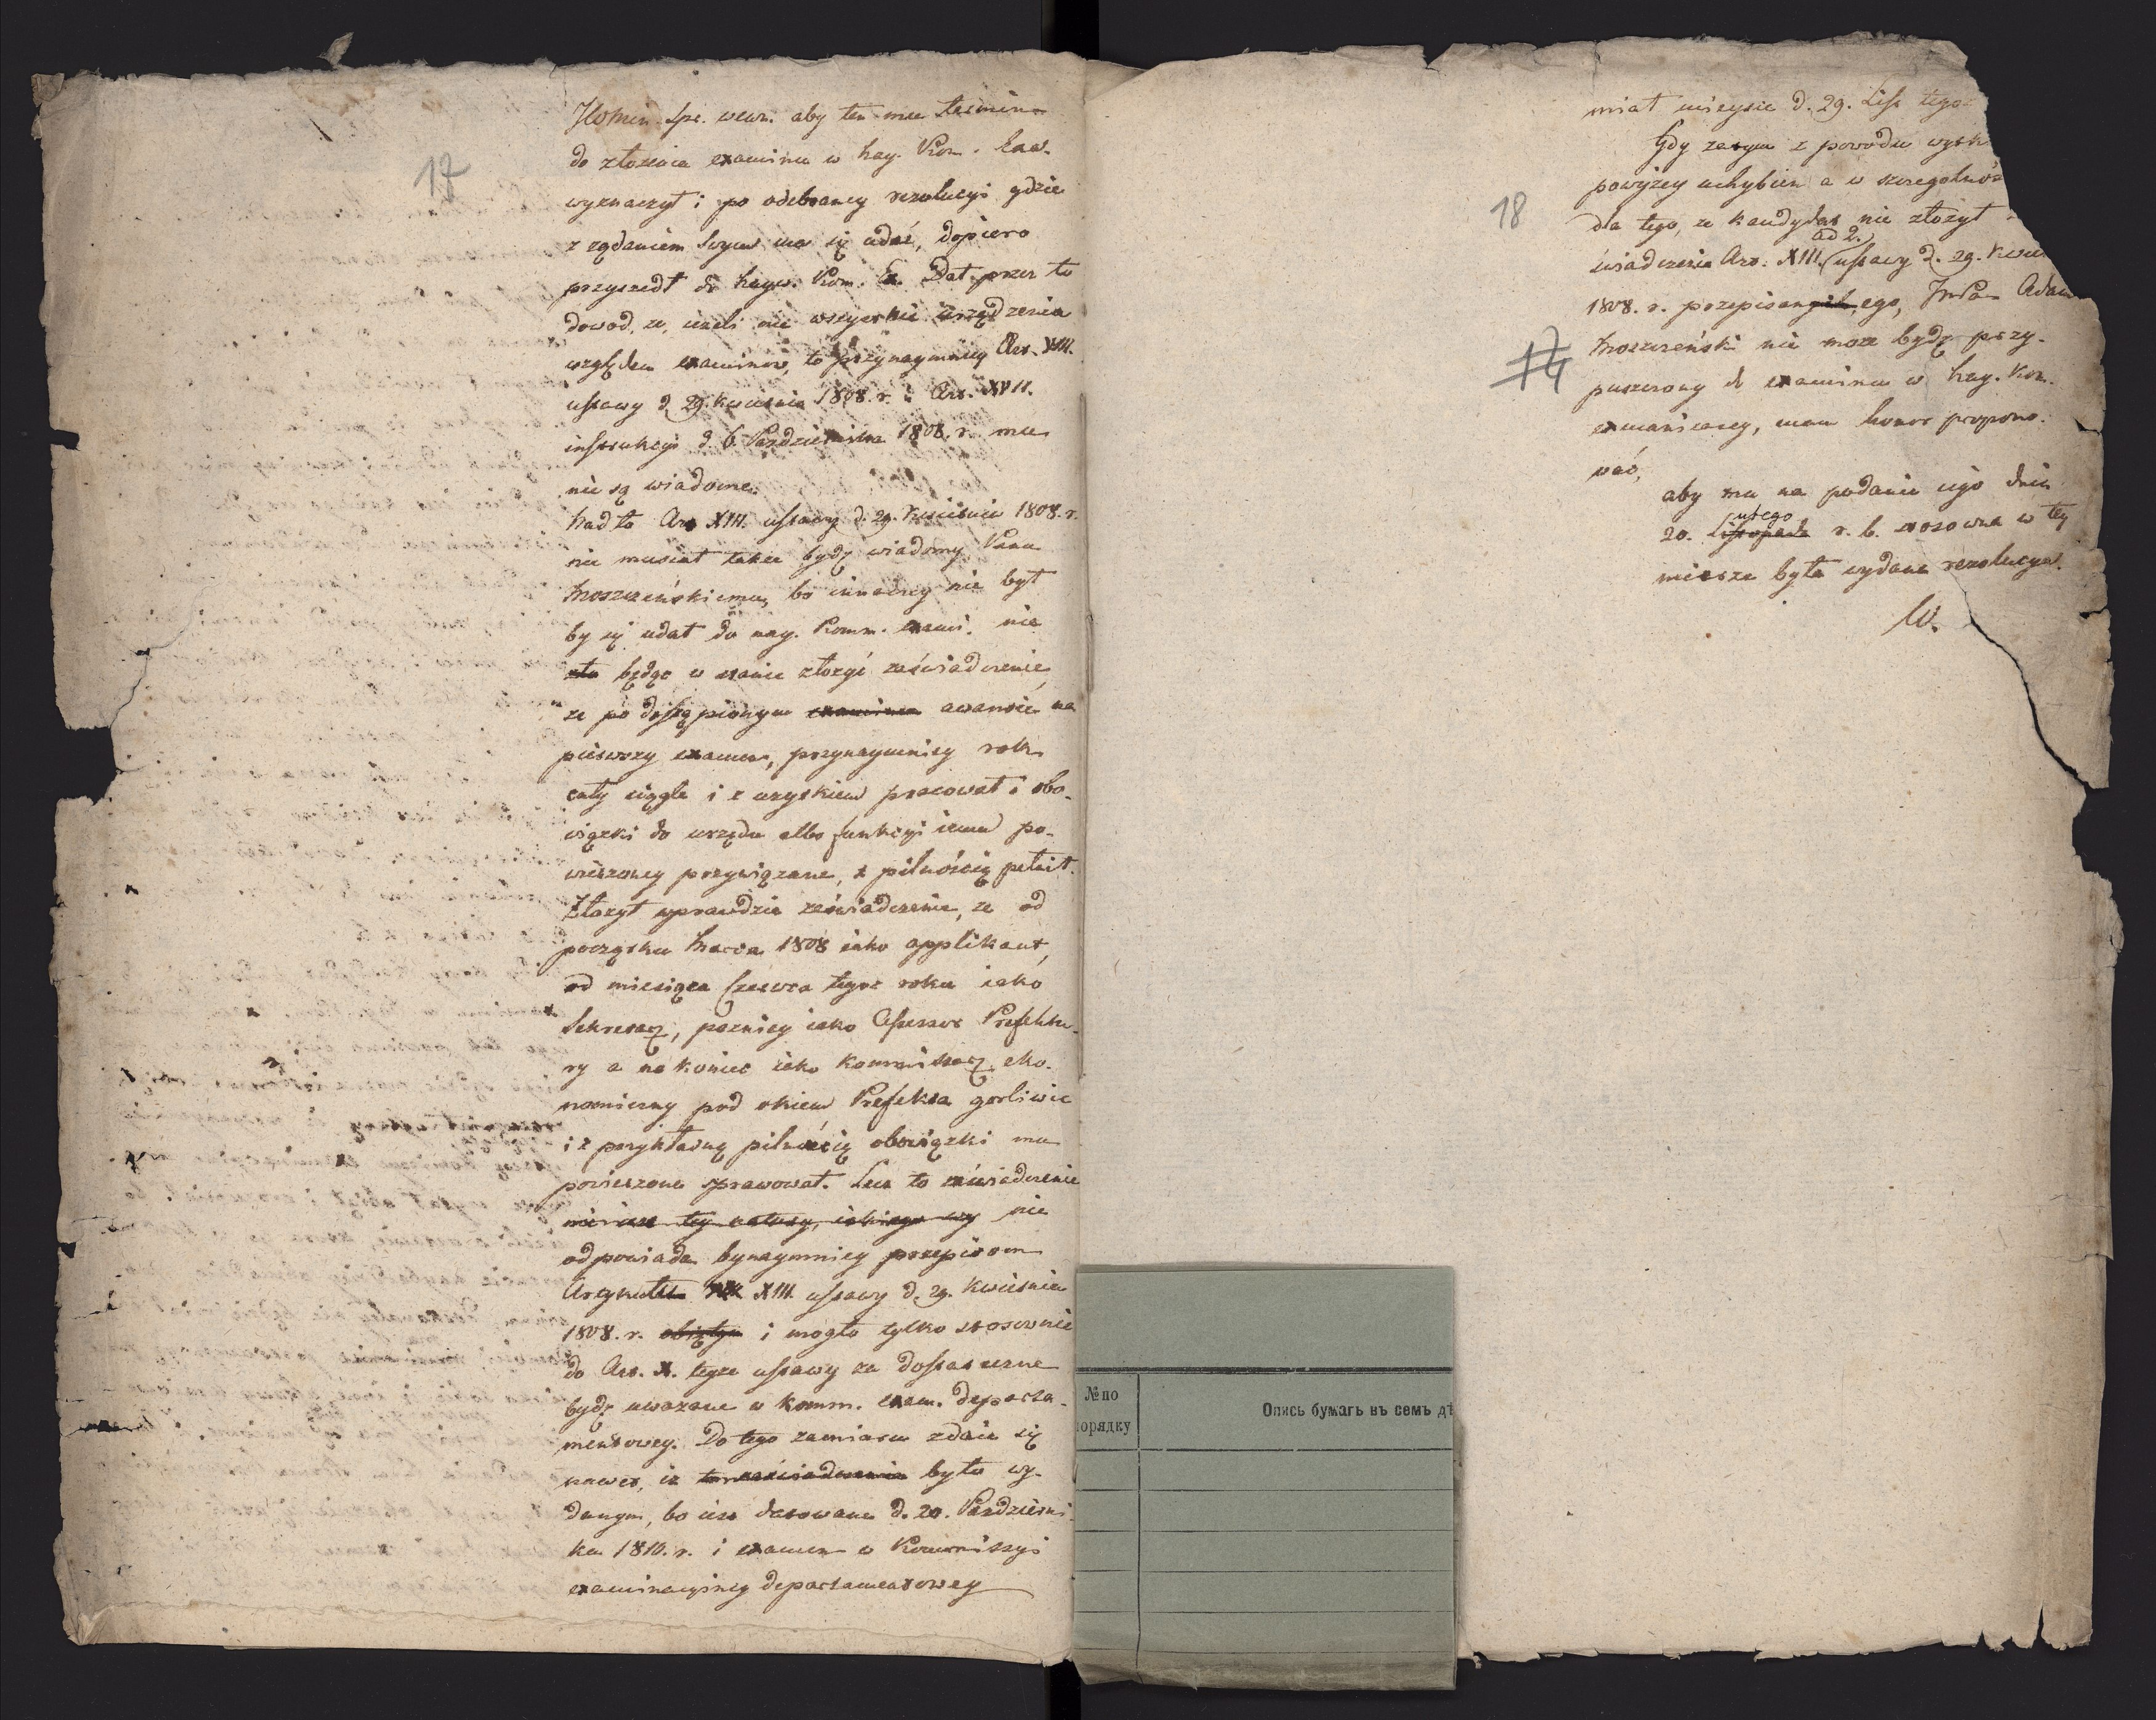 17
JWMin. Spr. wewn. aby ten mu termin
do złożenia examinu w nay. Kom. Exa.
wyznaczył i po odebraney rezolucyi gdzie
z rządaniem swym ma się udać, dopiero
przyszedł do nayw. Kom. Ex. Dał przez to
dowod, że, ieżeli nie wszystkie urządzenia
względem examinow, to przynaymniey Art. XIII.
ustawy d. 29. Kwietnia 1808. r. i Art. XVII.
instrukcyi d. 6. Październiks 1808. r. mu
nie są wiadome.
Nadto Art XIII. ustawy d. 29. Kwietnia 1808. r.
nie musiał także bydź wiadomy Panu
Moszczeńskiemu, bo inaczey nie był
by się udał do nay. Komm. exami. nie
będąc w stanie złożyć zaświadczenie,
że po dostąpionym examinu awansie na
pierwszy examen, przynaymniey rok
cały ciągle i z uzyskiem pracował i obo-
wiązki do urzędu albo funkcyi iemu po-
wierzoney przywiązane, z pilnością pełnił.
Złożył wprawdzie zaświadczenie, że od
początku Marca 1808 iako applikant,
od miesiąca Czerwca tegoż roku iako
Sekretarz, pozniey iako Assessor Prefektu-
ry a na koniec iako Kommissarz eko-
nomiczny pod okiem Prefekta gorliwie
i z przykładną pilnością obowiązki mu
powierzone sprawował. Lecz to zaświadczenie
nie iest tey natury, iakiego wy nie
odpowiada bynaymniey przepisom
Artykułu XIII. ustawy d. 29. Kwietnia
1808. r. obiętym i mogło tylko stosownie
do Art. X. teyże ustawy za dostateczne
bydź uważane w Komm. exam. departa-
mentowey. Do tego zamiaru zdaie się
nawet, iż to zaświadczenie było wy-
danym, bo iest datowane d. 20. Październi-
ka 1810. r. i examen w Kommissyi
examinacyiney departamentowey
18
14
miał mieysce d. 29. List. tego
Gdy zatym z powodu wytk
powyżey uchybień a w szczegolnoś
dla tego, że kandydat nie złożył
świadczenia Art. XIII. ad 2. ustawy d. 29. Kwie
1808. r. przepisanych ego, JmPan Adam
Moszczeński nie może bydź przy-
puszczony do examinu w nay. Kom.
examinacey, mam honor propono-
wać,
aby mu na podanie iego dnia
20. Listopada Lutego r. b. stosowna w tey
mierze była wydana rezolucya.
W.
№ по
порядку
Опись бумагъ въ семъ дѣ